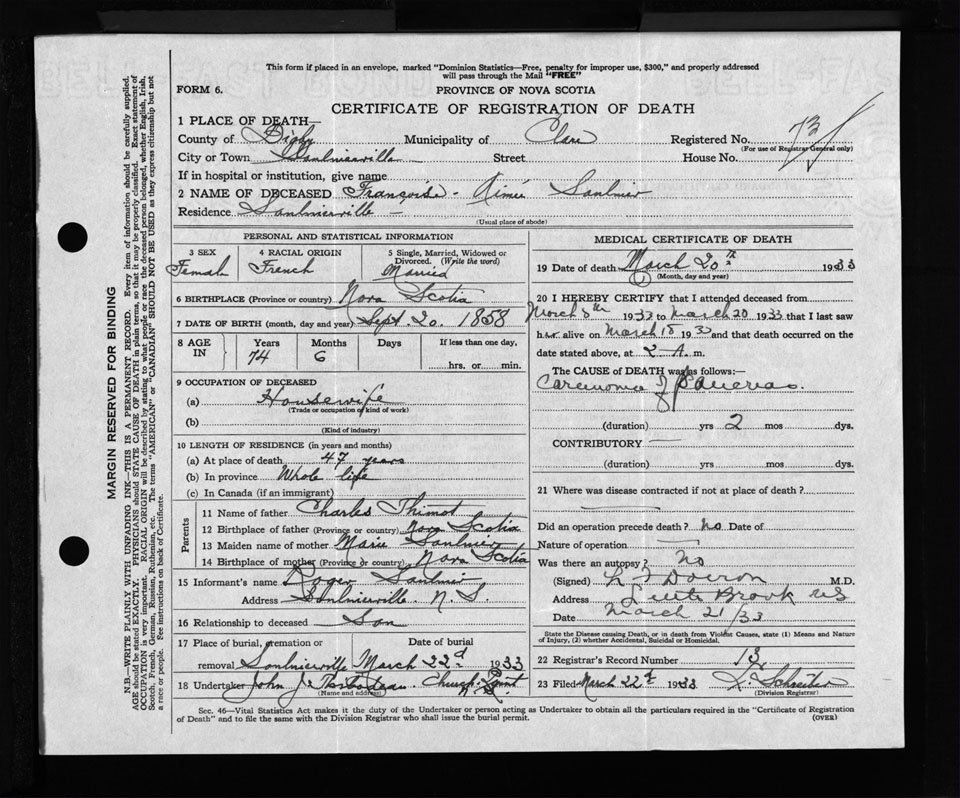 This form if placed in an envelope, marked "Dominion Statistics—Free, penalty for improper use, $300," and properly addressed
will pass through the Mail "FREE"
FORM 6.
PROVINCE OF NOVA SCOTIA
CERTIFICATE OF REGISTRATION OF DEATH
1 PLACE OF DEATH—
County of Digby Municipality of Clare Registered No. 73
(For use of Registrar General only)
City or Town Saulnierville Street House No.
If in hospital or institution, give name
2 NAME OF DECEASED Françoise - Aimée Saulnier
Residence Saulnierville
(Usual place of abode)
PERSONAL AND STATISTICAL INFORMATION
3 SEX Female
4 RACIAL ORIGIN French
5 Single, Married, Widowed or
Divorced. (Write the word)
Married
6 BIRTHPLACE (Province or country) Nova Scotia
7 DATE OF BIRTH (month, day and year) Sept. 20. 1858
8 AGE IN Years 74 Months 6 Days If less than one day,
hrs. or min.
9 OCCUPATION OF DECEASED
(a) Housewife
(Trade or occupation of kind of work)
(b)
(Kind of industry)
10 LENGTH OF RESIDENCE (in years and months)
(a) At place of death 47 years
(b) In province Whole life
(c) In Canada (if an immigrant)
Parents
11 Name of father Charles Thimot
12 Birthplace of father (Province or country) Nova Scotia
13 Maiden name of mother Marie Saulnier
14 Birthplace of mother (Province or country) Nova Scotia
15 Informant's name Roger Saulnier
Address Saulnierville N. S.
16 Relationship to deceased Son
17 Place of burial, cremation or Date of burial
removal Saulnierville March 22d 1933
18 Undertaker John J. Church Point N.S.
(Name and address)
MEDICAL CERTIFICATE OF DEATH
19 Date of death March 20th 1933
(Month, day and year)
20 I HEREBY CERTIFY that I attended deceased from
March 8th 1933 to March 20 1933 that I last saw
her alive on March 18 1933 and that death occurred on the
date stated above, at 2 A. m.
The CAUSE OF DEATH was as follows:
Carcinoma of Pancreas.
(duration) yrs 2 mos dys.
CONTRIBUTORY
(duration) yrs mos dys.
21 Where was disease contracted if not at place of death?
Did an operation precede death? No Date of
Nature of operation
Was there an autopsy? No
(Signed) Doiron M.D.
Address Little Brook NS
Date March 21/33
State the Disease causing Death, or in death from Violent Causes, state (1) Means and Nature
of Injury, (2) whether Accidental, Suicidal or Homicidal.
22 Registrar's Record Number 13
23 Filed March 22d 1933
(Division Registrar)
Sec. 46—Vital Statistics Act makes it the duty of the Undertaker or person acting as Undertaker to obtain all the particulars required in the "Certificate of Registration
of Death" and to file the same with the Division Registrar who shall issue the burial permit.
(OVER)
MARGIN RESERVED FOR BINDING
N.B.—WRITE PLAINLY WITH UNFADING INK—THIS IS A PERMANENT RECORD. Every item of information should be carefully supplied.
AGE should be stated EXACTLY. PHYSICIANS should STATE CAUSE OF DEATH in plain terms, so that it may be properly classified. Exact statement of
OCCUPATION is very important. RACIAL ORIGIN will be described by stating to what people or race the deceased person belonged, whether English, Irish,
Scotch, French, German, Russian, Ruthenian, etc. The terms "AMERICAN" or "CANADIAN" SHOULD NOT BE USED as they express citizenship but not
a race or people. See instructions on back of Certificate.